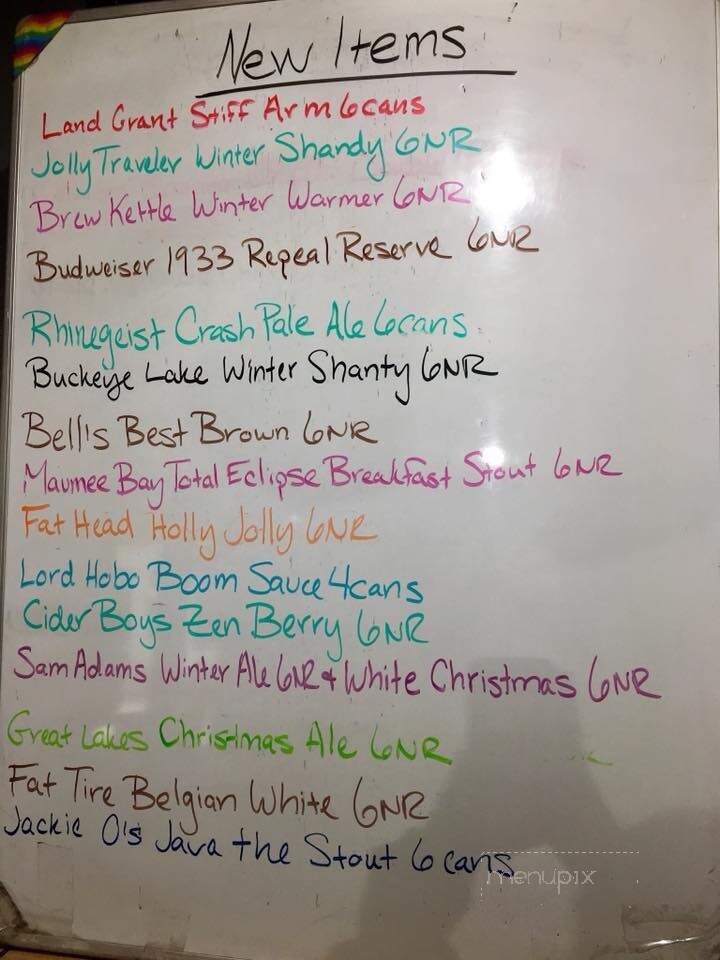 New Items
Land Grant Stiff Arm 6cans
Jolly Traveler Winter Shandy 6NR
Brew Kettle Winter Warmer 6NR
Budweiser 1933 Repeal Reserve 6NR
Rhinegeist Crash Pale Ale 6cans
Buckeye Lake Winter Shanty 6NR
Bell's Best Brown 6NR
Maumee Bay Total Eclipse Breakfast Stout 6NR
Fat Head Holly Jolly 6NR
Lord Hobo Boom Sauce 4cans
Cider Boys Zen Berry 6NR
Sam Adams Winter Ale 6NR & White Christmas 6NR
Great Lakes Christmas Ale 6NR
Fat Tire Belgian White 6NR
Jackie O's Java the Stout 6 cans
menupix